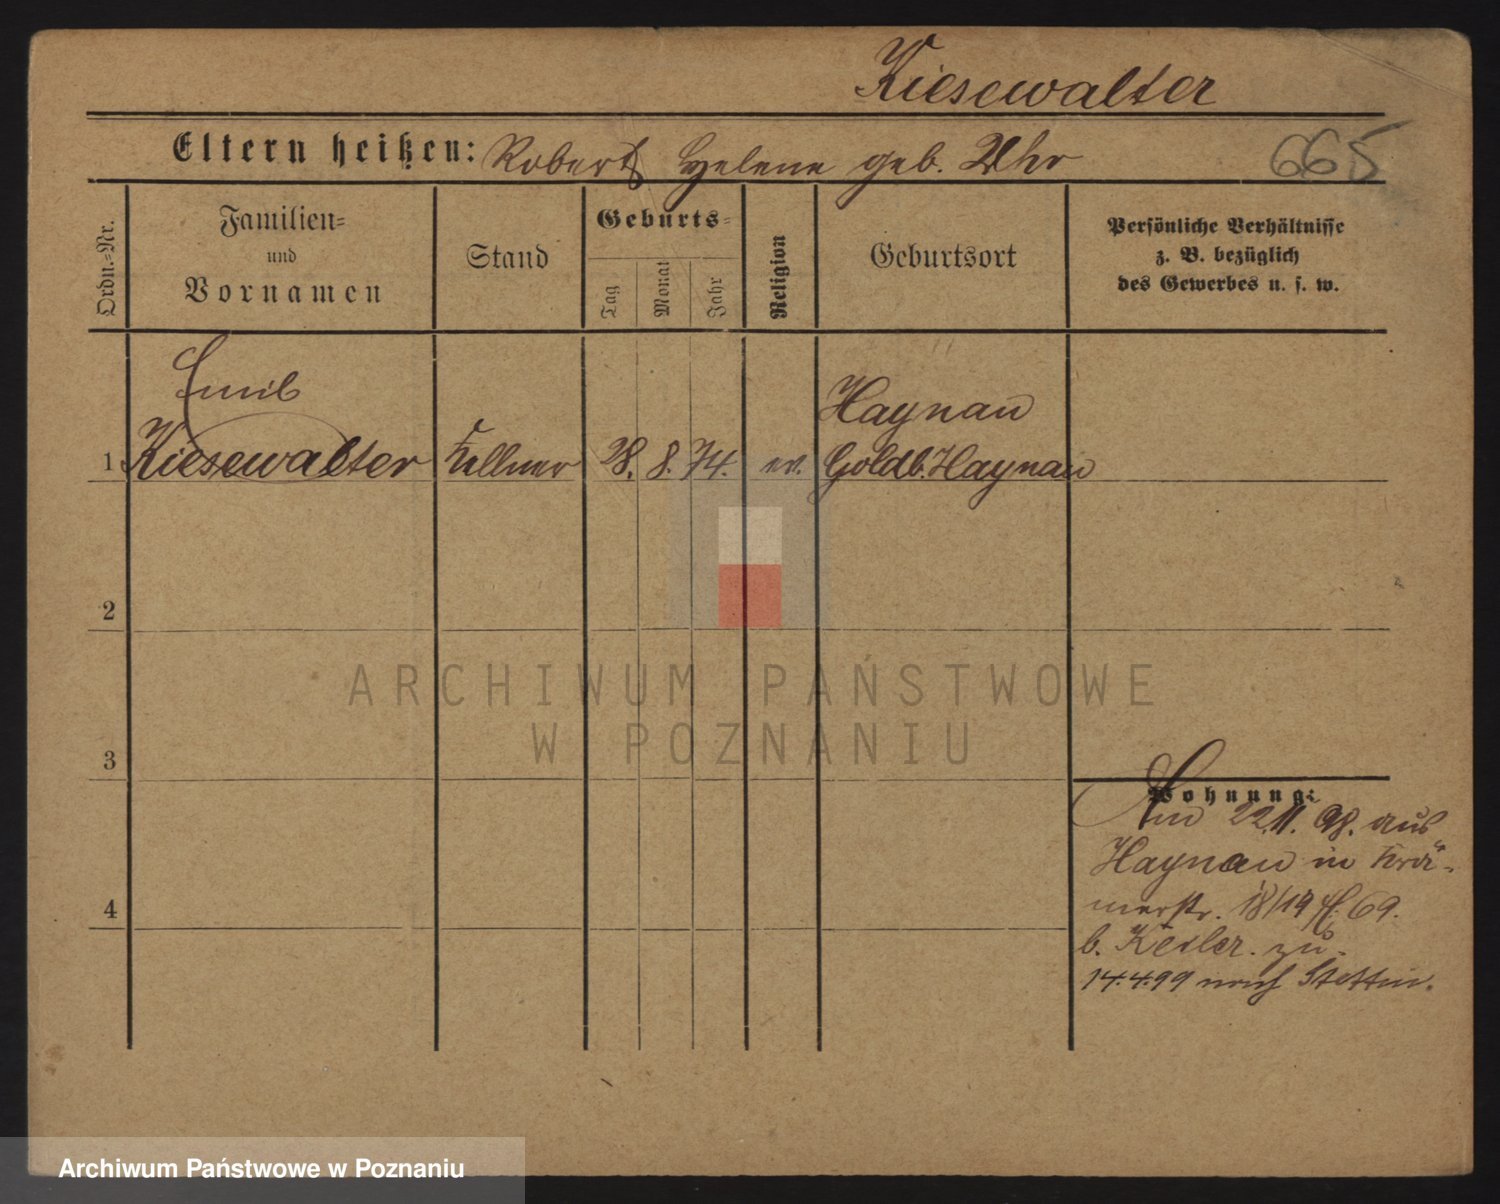 Kiesewalter
Eltern heißen: Robert, Helene geb. Uhr
665
Ordn.=Nr.
Familien=
und
Vornamen
Stand
Geburts=
Tag
Monat
Jahr
Religion
Geburtsort
Persönliche Verhältnisse
z. B. bezüglich
des Gewerbes u. s. w.
Emil
Haynau
1 Kiesewalter Kellner 28. 8. 74. ev. Goldb. Haynau
2
3
4
Wohnung:
Am 22.11.98. aus
Haynau in Krä-
merstr. 18/19 69.
b. Keiler. zu.
14.4.99 nach Stettin.
ARCHIWUM PAŃSTWOWE
W POZNANIU
Archiwum Państwowe w Poznaniu